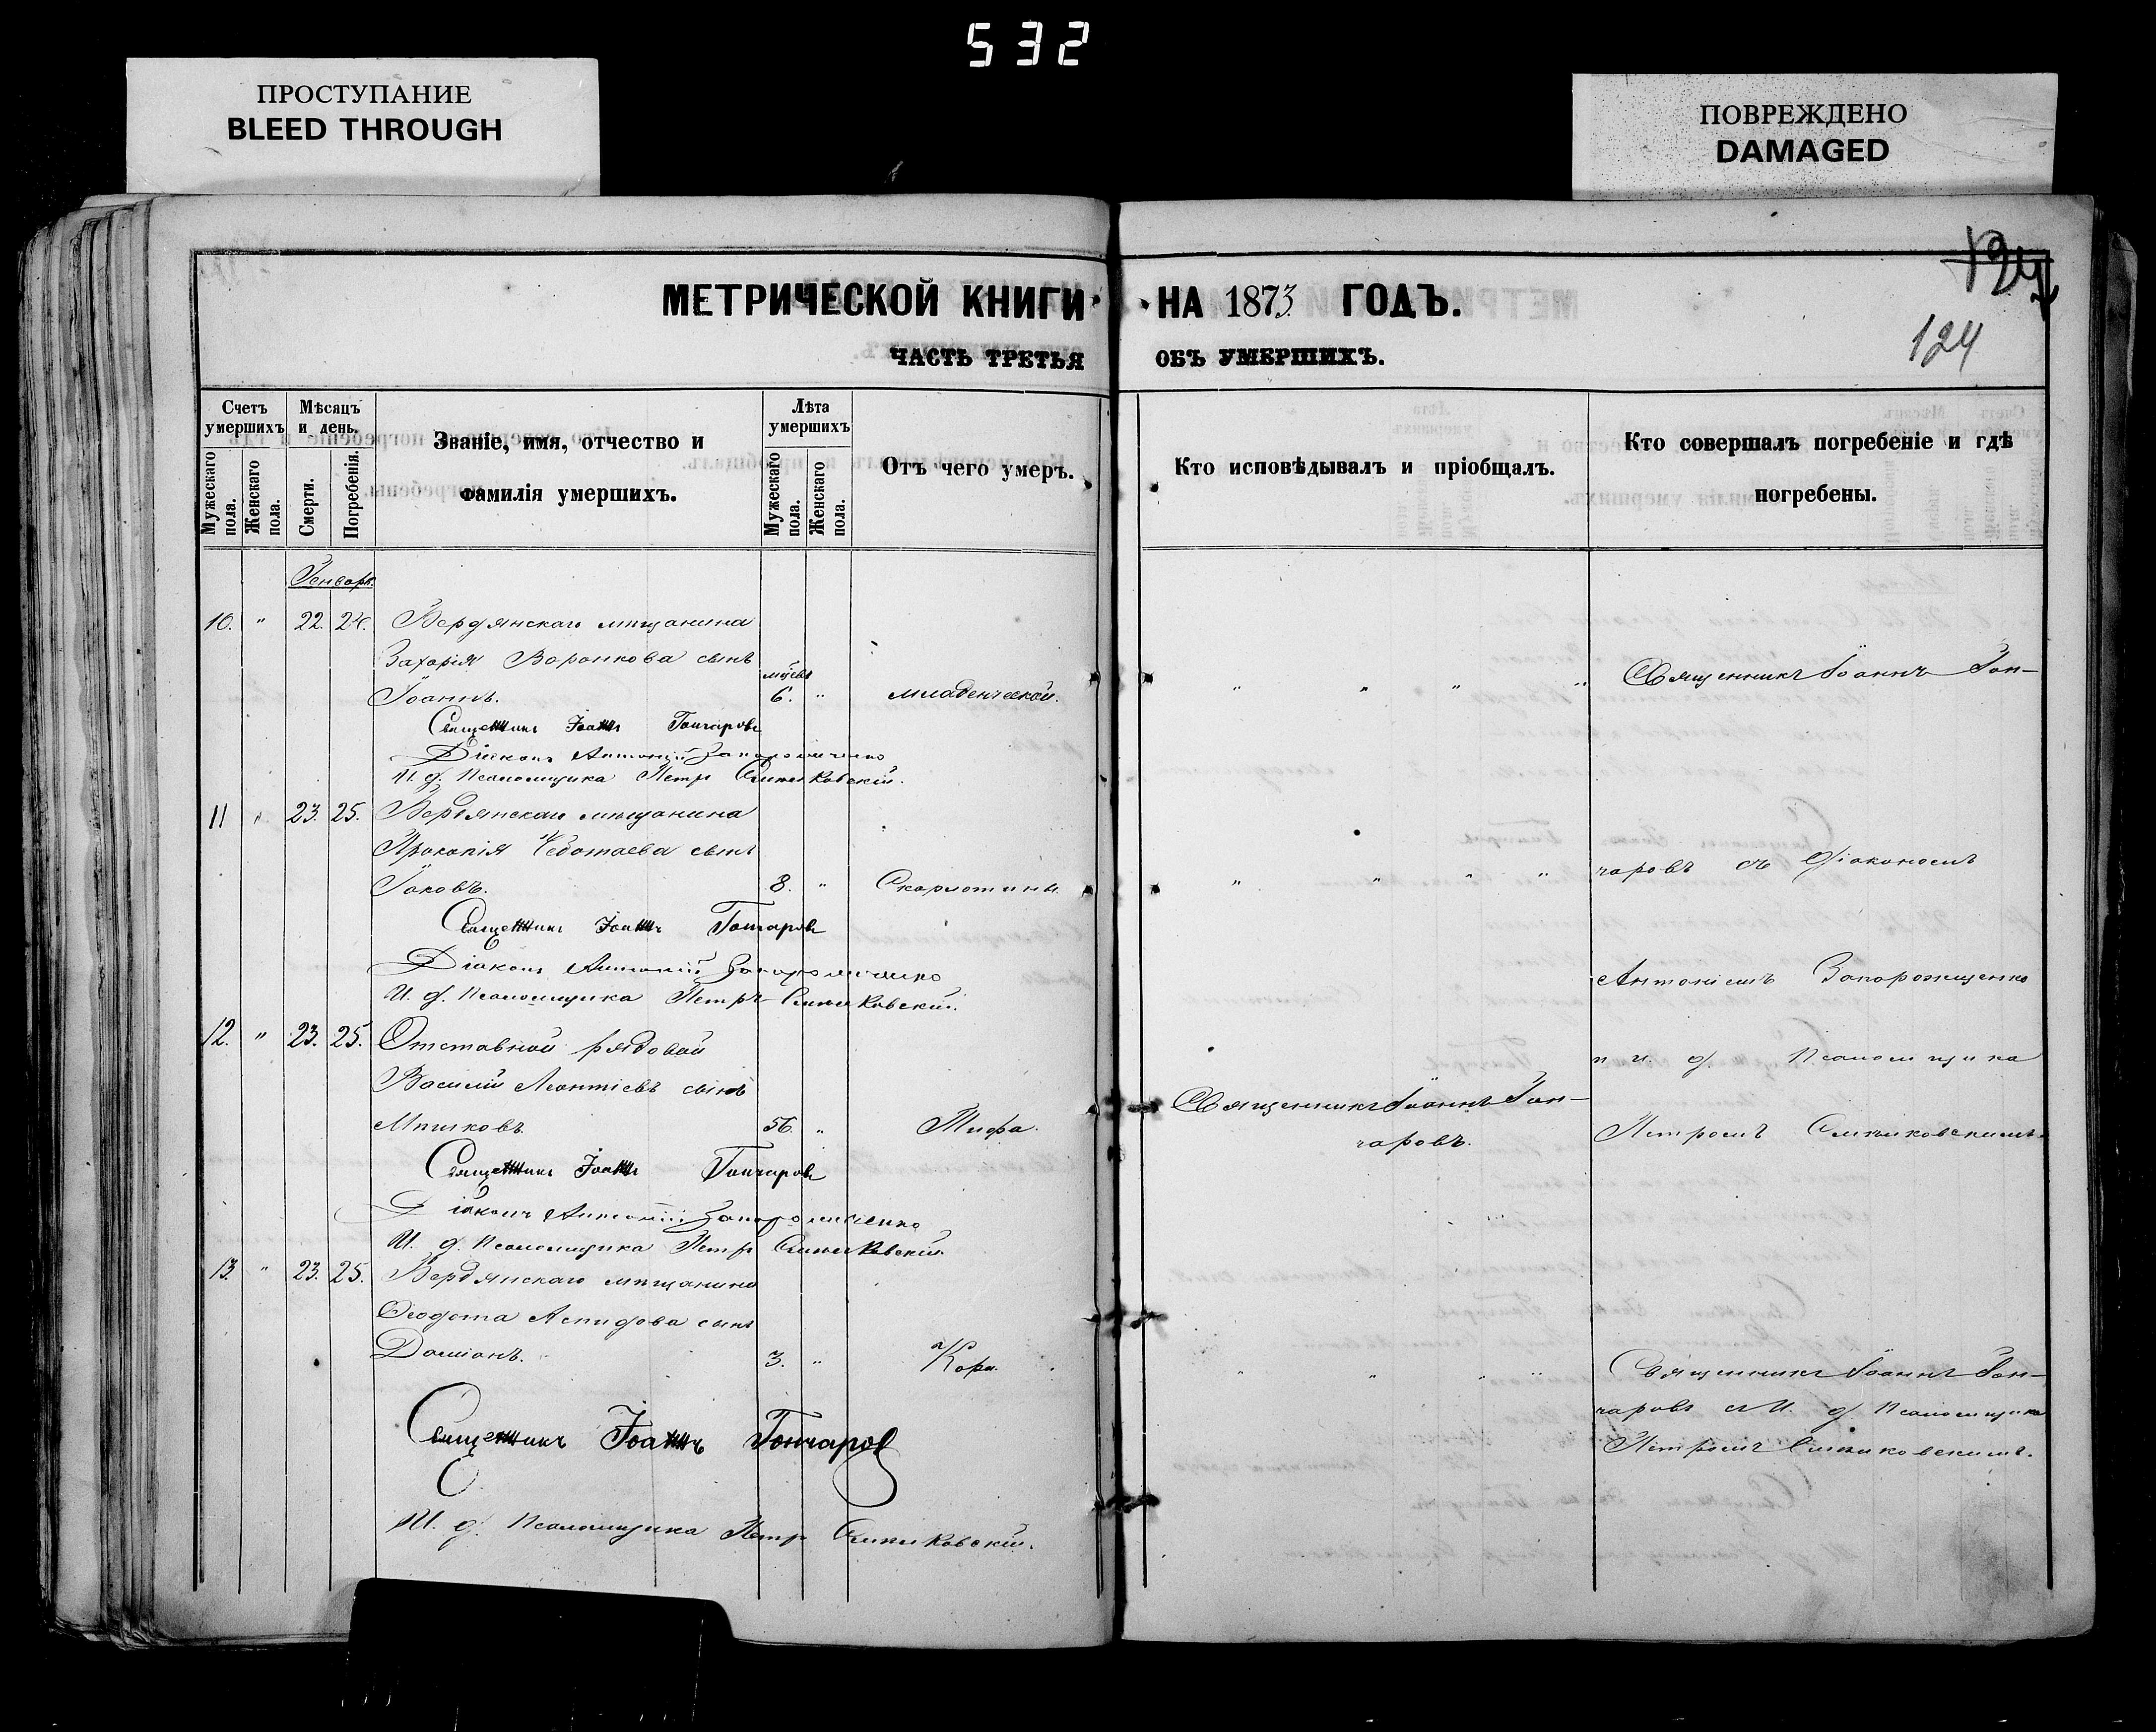 532
ПРОСТУПАНИЕ
BLEED THROUGH
ПОВРЕЖДЕНО
DAMAGED
МЕТРИЧЕСКОЙ КНИГИ НА 1873 ГОДЪ.
124
124
ЧАСТЬ ТРЕТЬЯ ОБЪ УМЕРШИХЪ.
Счетъ умершихъ
Мужескаго пола.
Женскаго пола.
Мѣсяцъ и день.
Смерти.
Погребенія.
Званіе, имя, отчество и
фамилія умершихъ.
Лѣта умершихъ
Мужескаго пола.
Женскаго пола.
Отъ чего умеръ.
Кто исповѣдывалъ и пріобщалъ.
Кто совершалъ погребеніе и гдѣ
погребены.
Генварь.
10. " 22. 24. Бердянскаго мѣщанина
Захарія Воронкова сынъ
Іоаннъ. 6. " младенческой.
" " " " Священникъ Іоаннъ Гон-
Священникъ Іоаннъ Гончаровъ
Діаконъ Антоній Запорожченко
И. д. Псаломщика Петръ
11 " 23. 25. Бердянскаго мѣщанина
Прокопія Чеботаева сынъ
Іаковъ. 8. " Скарлотины.
" " " " чаровъ съ Діакономъ
Священникъ Іоаннъ Гончаровъ
Діаконъ Антоній Запорожченко
И. д. Псаломщика Петръ
Антоніемъ Запорожченко
12. " 23. 25. Отставной рядовой
Василій Леонтіевъ сынъ
56. " Тифа.
Священникъ Іоаннъ Гон-
чаровъ.
и и. д. Псаломщика
Петромъ
Священникъ Іоаннъ Гончаровъ
Діаконъ Антоній Запорожченко
И. д. Псаломщика Петръ
13. " 23. 25. Бердянскаго мѣщанина
Ѳеодота Аспидова сынъ
Даміанъ. 3. " Кори.
" " " " Священникъ Іоаннъ Гон-
чаровъ съ И. д. Псаломщика
Петромъ
Священникъ Іоаннъ Гончаровъ
И. д. Псаломщика Петръ